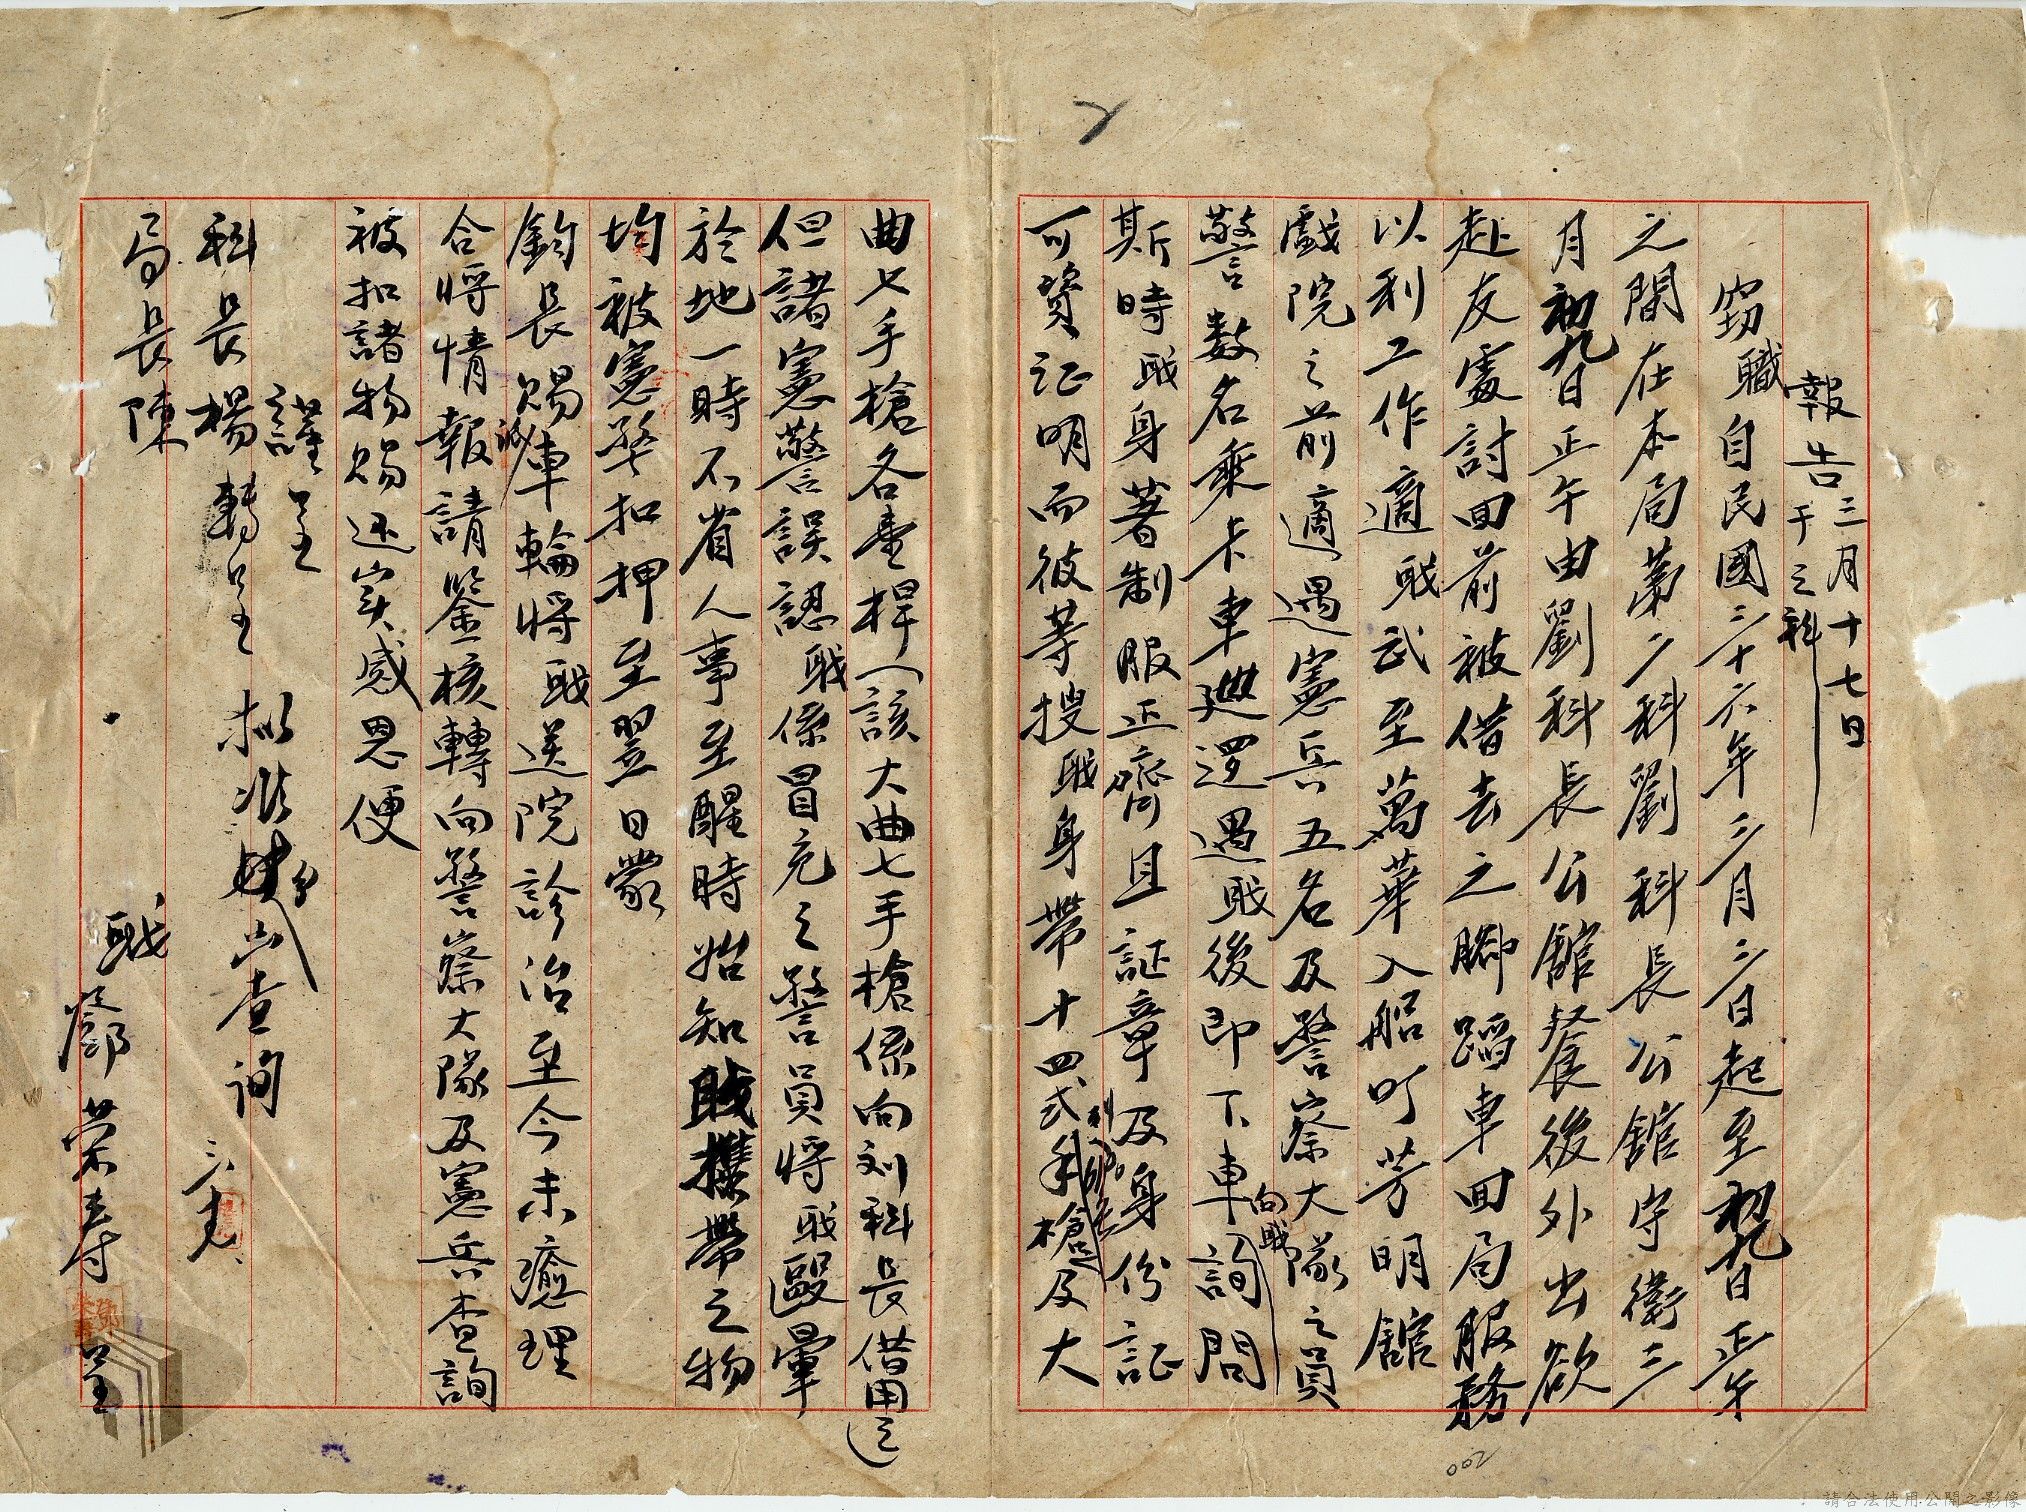 報告 三月十七日
于之科
竊職自民國三十六年三月三日起至初九日正午
之間在本局第二科劉科長公館守衛三
月初九日正午由劉科長公館餐後外出欲
赴友處討回前被借去之腳蹈車回局服務
以利工作適職武至萬華入船町芳明館
戲院之前適遇憲兵五名及警察大隊之員
警数名乘卡車迎還遇職後即下車向職詢問
斯時職身著制服正齊且証章及身份証
可資证明而彼等搜職身帶十四式手槍及大
曲七手槍各壹桿(該大曲七手槍係向刘科長借用之)
但諸憲警誤認職係冒充之警員將職毆暈
於地一時不省人事至醒時始知職攜帶之物
均被憲警扣押至翌日蒙
鈞長賜派車輪將職送院診治至今未癒理
合將情報請鑒核轉向警察大隊及憲兵查詢
被扣諸物賜还实感恩便
謹呈
科長楊轉呈
局長陳
職 鄧荣寿呈
拟准 查詢
002
請合法使用公開之影像